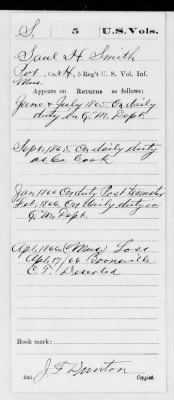 S. 5 U.S. Vols.
Saul H Smith
Pvt., Co. H, 5 Reg't U. S. Vol. Inf.
Appears on Returns as follows:
June & July 1865 On daily
duty in Q. M. Dept.
Sept. 1865 On daily duty
as Co. Cook
Jan 1866 On duty Post Teamster
Feb. 1866 On daily duty in
Q. M. Dept.
Apl. 1866 Loss
Apl. 17/66 Boonville
C. T. Deserted
Book mark:
J. F. Dunton
(646) Copyist.